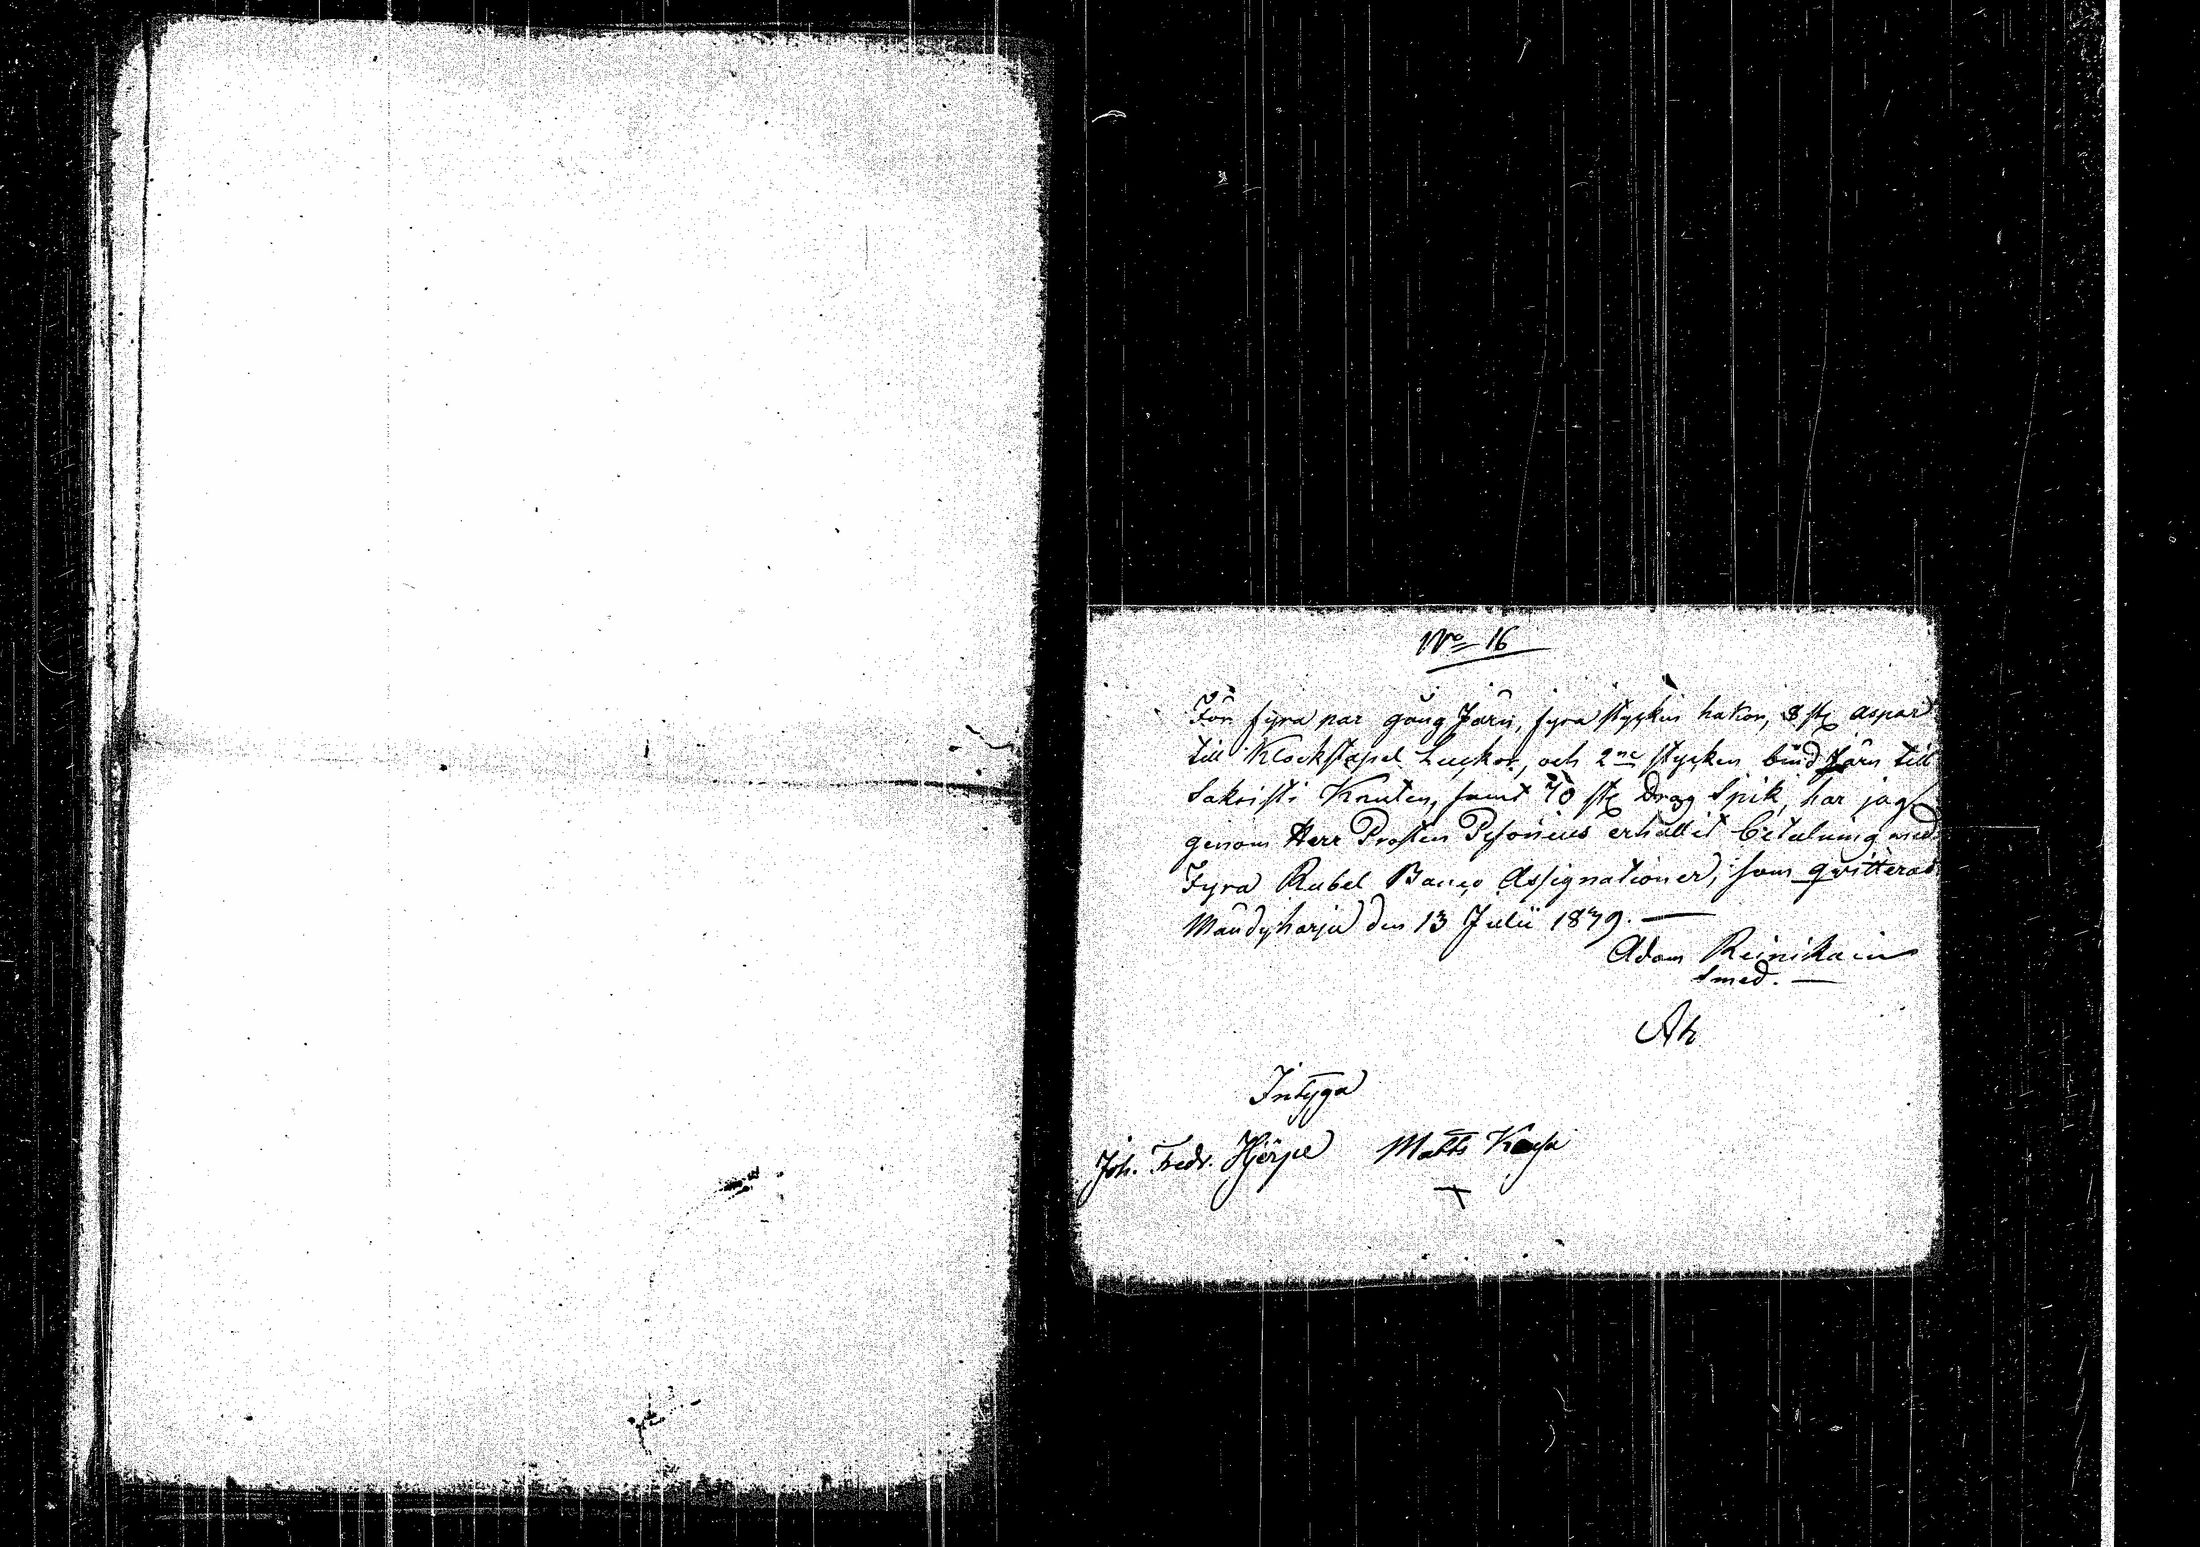 No 16
För fyra par gång Järn, fyra stycken hakor, 8 st. aspar
till Klockstapel Luckor, och 2ne stycken bind Järn till
Sakristi Knuten, samt 70 st. Drag Spik, har jag
genom Herr Prosten Pesonius erhållit betalning med
Fyra Rubel Banco Assignationer, som qvitteras
Mändyharju den 13 Julii 1839.
Adam Reinikain
Smed.
AR
Intyga
Joh. Fredr. Hjerpe Matts